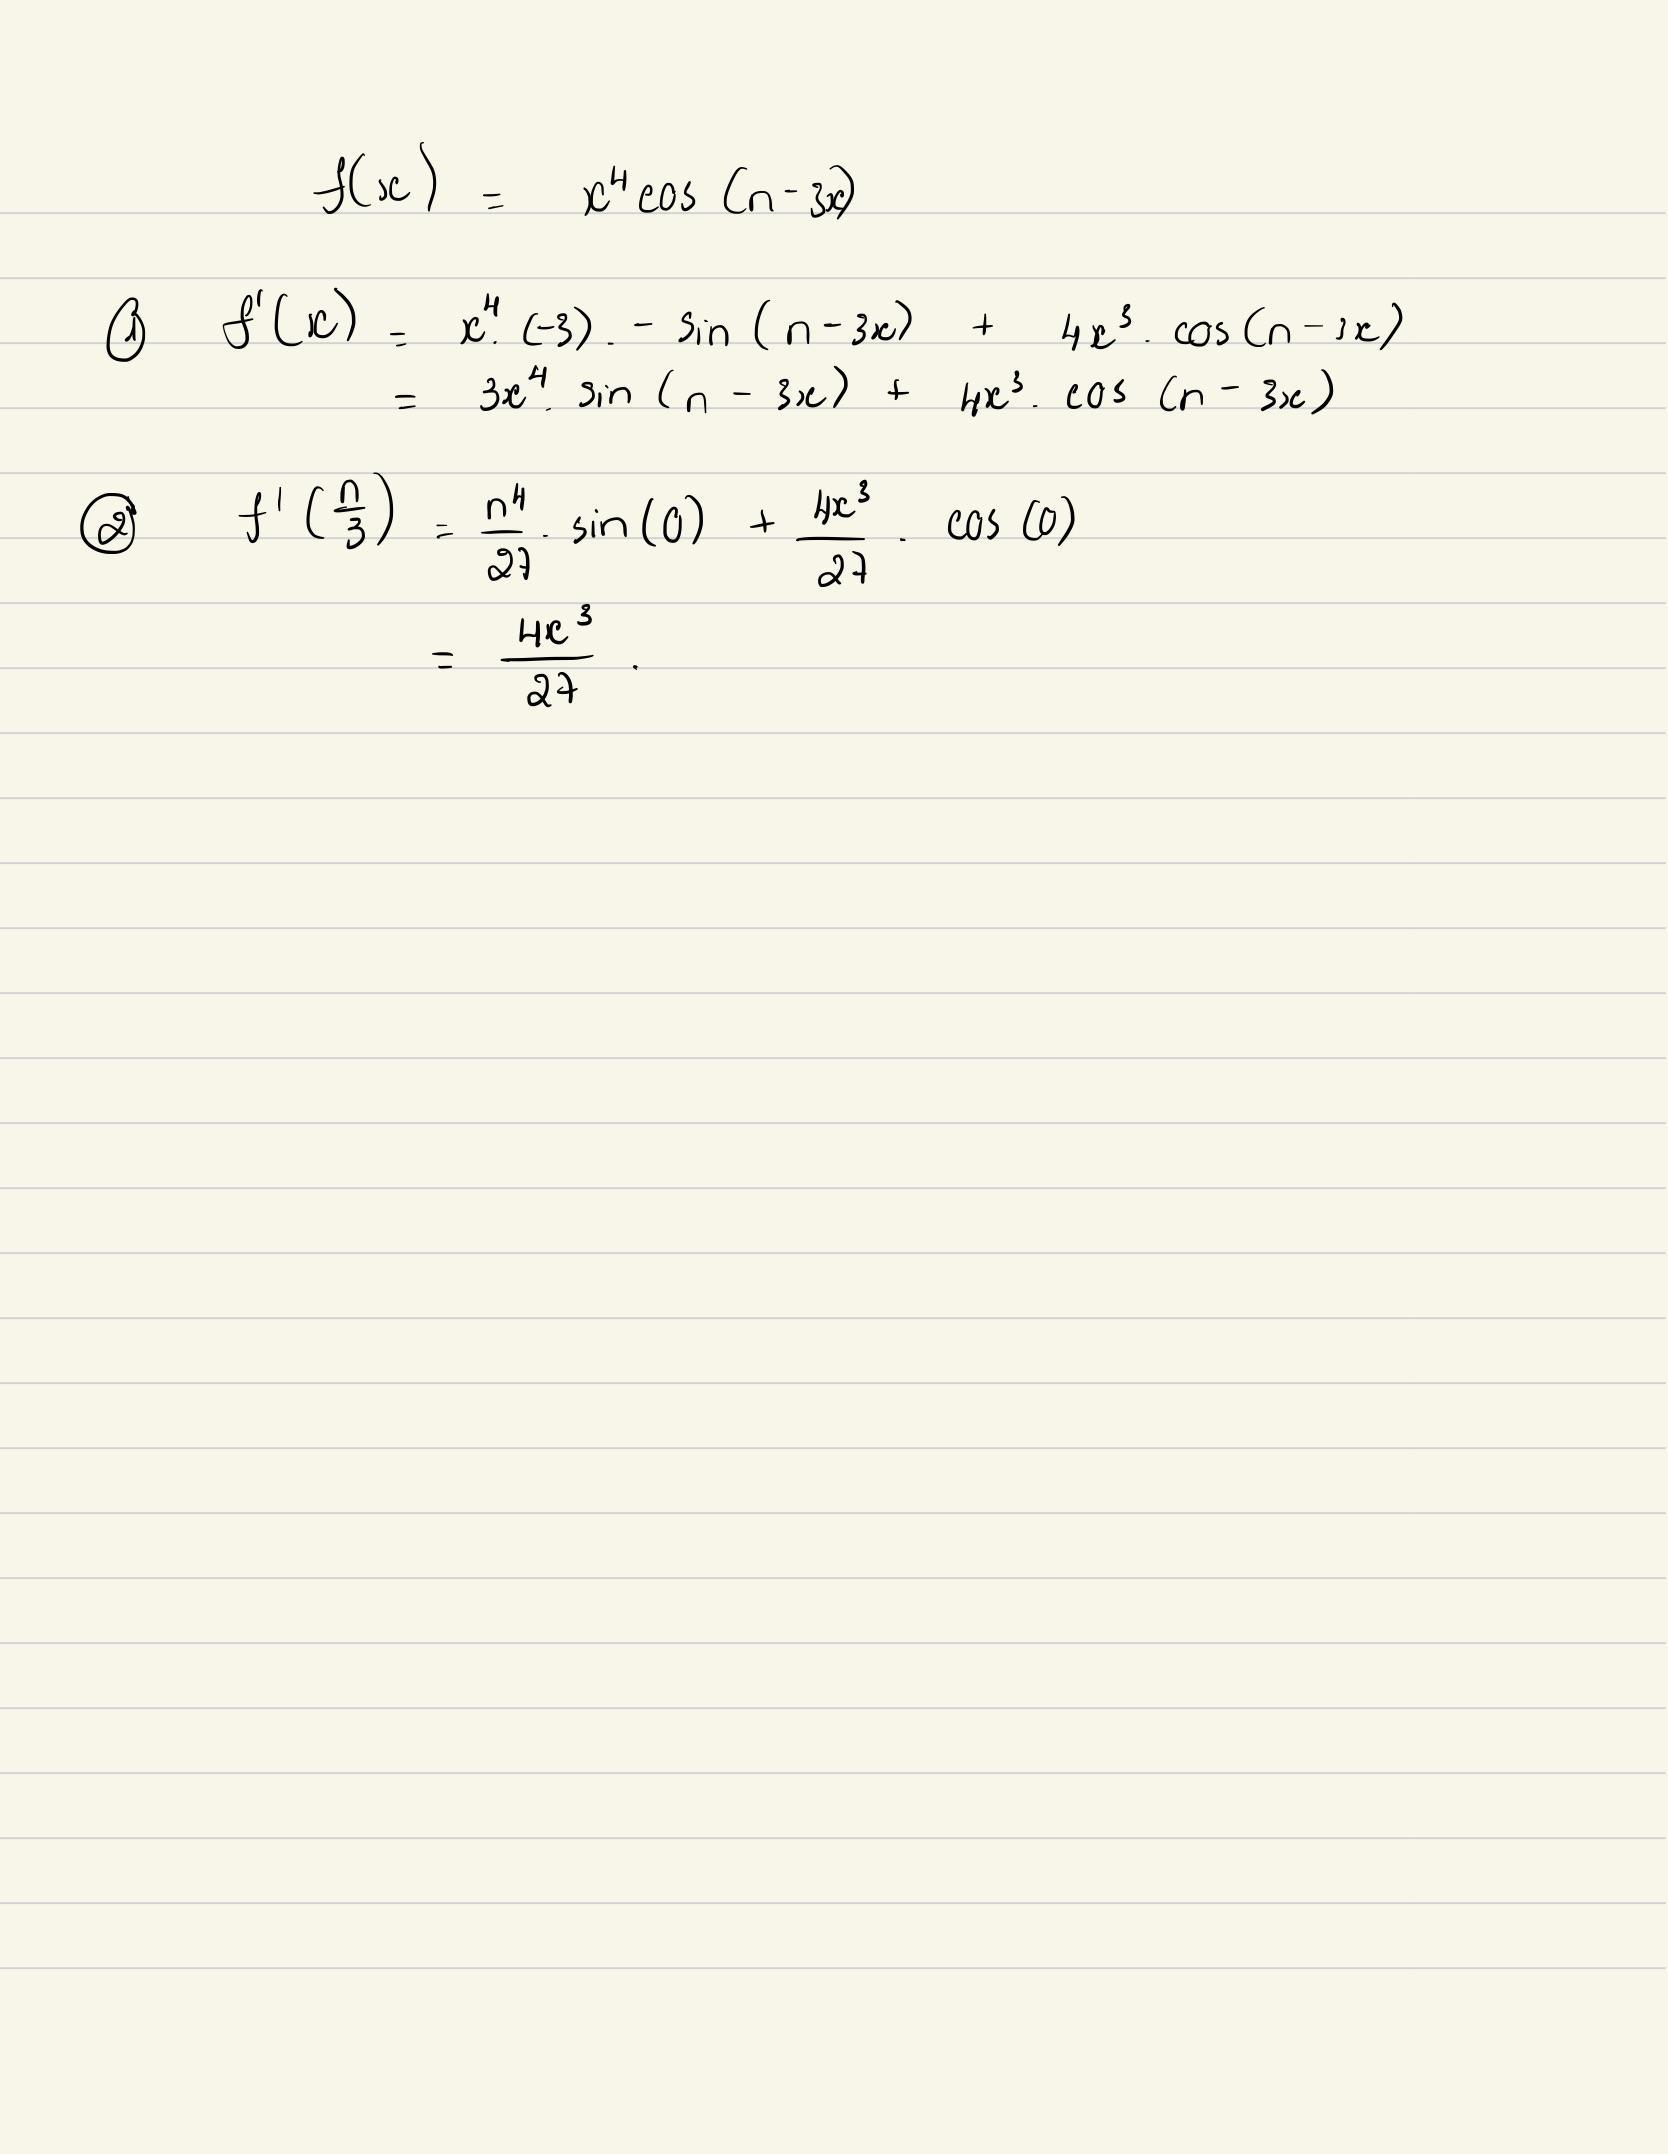 f(x) = x⁴ cos (n - 3x)
① f'(x) = x⁴. (-3). - sin (n - 3x) + 4x³. cos (n - 3x)
= 3x⁴. sin (n - 3x) + 4x³. cos (n - 3x)
② f' (n/3) = n⁴/27 . sin (0) + 4x³/27 . cos (0)
= 4x³/27 .